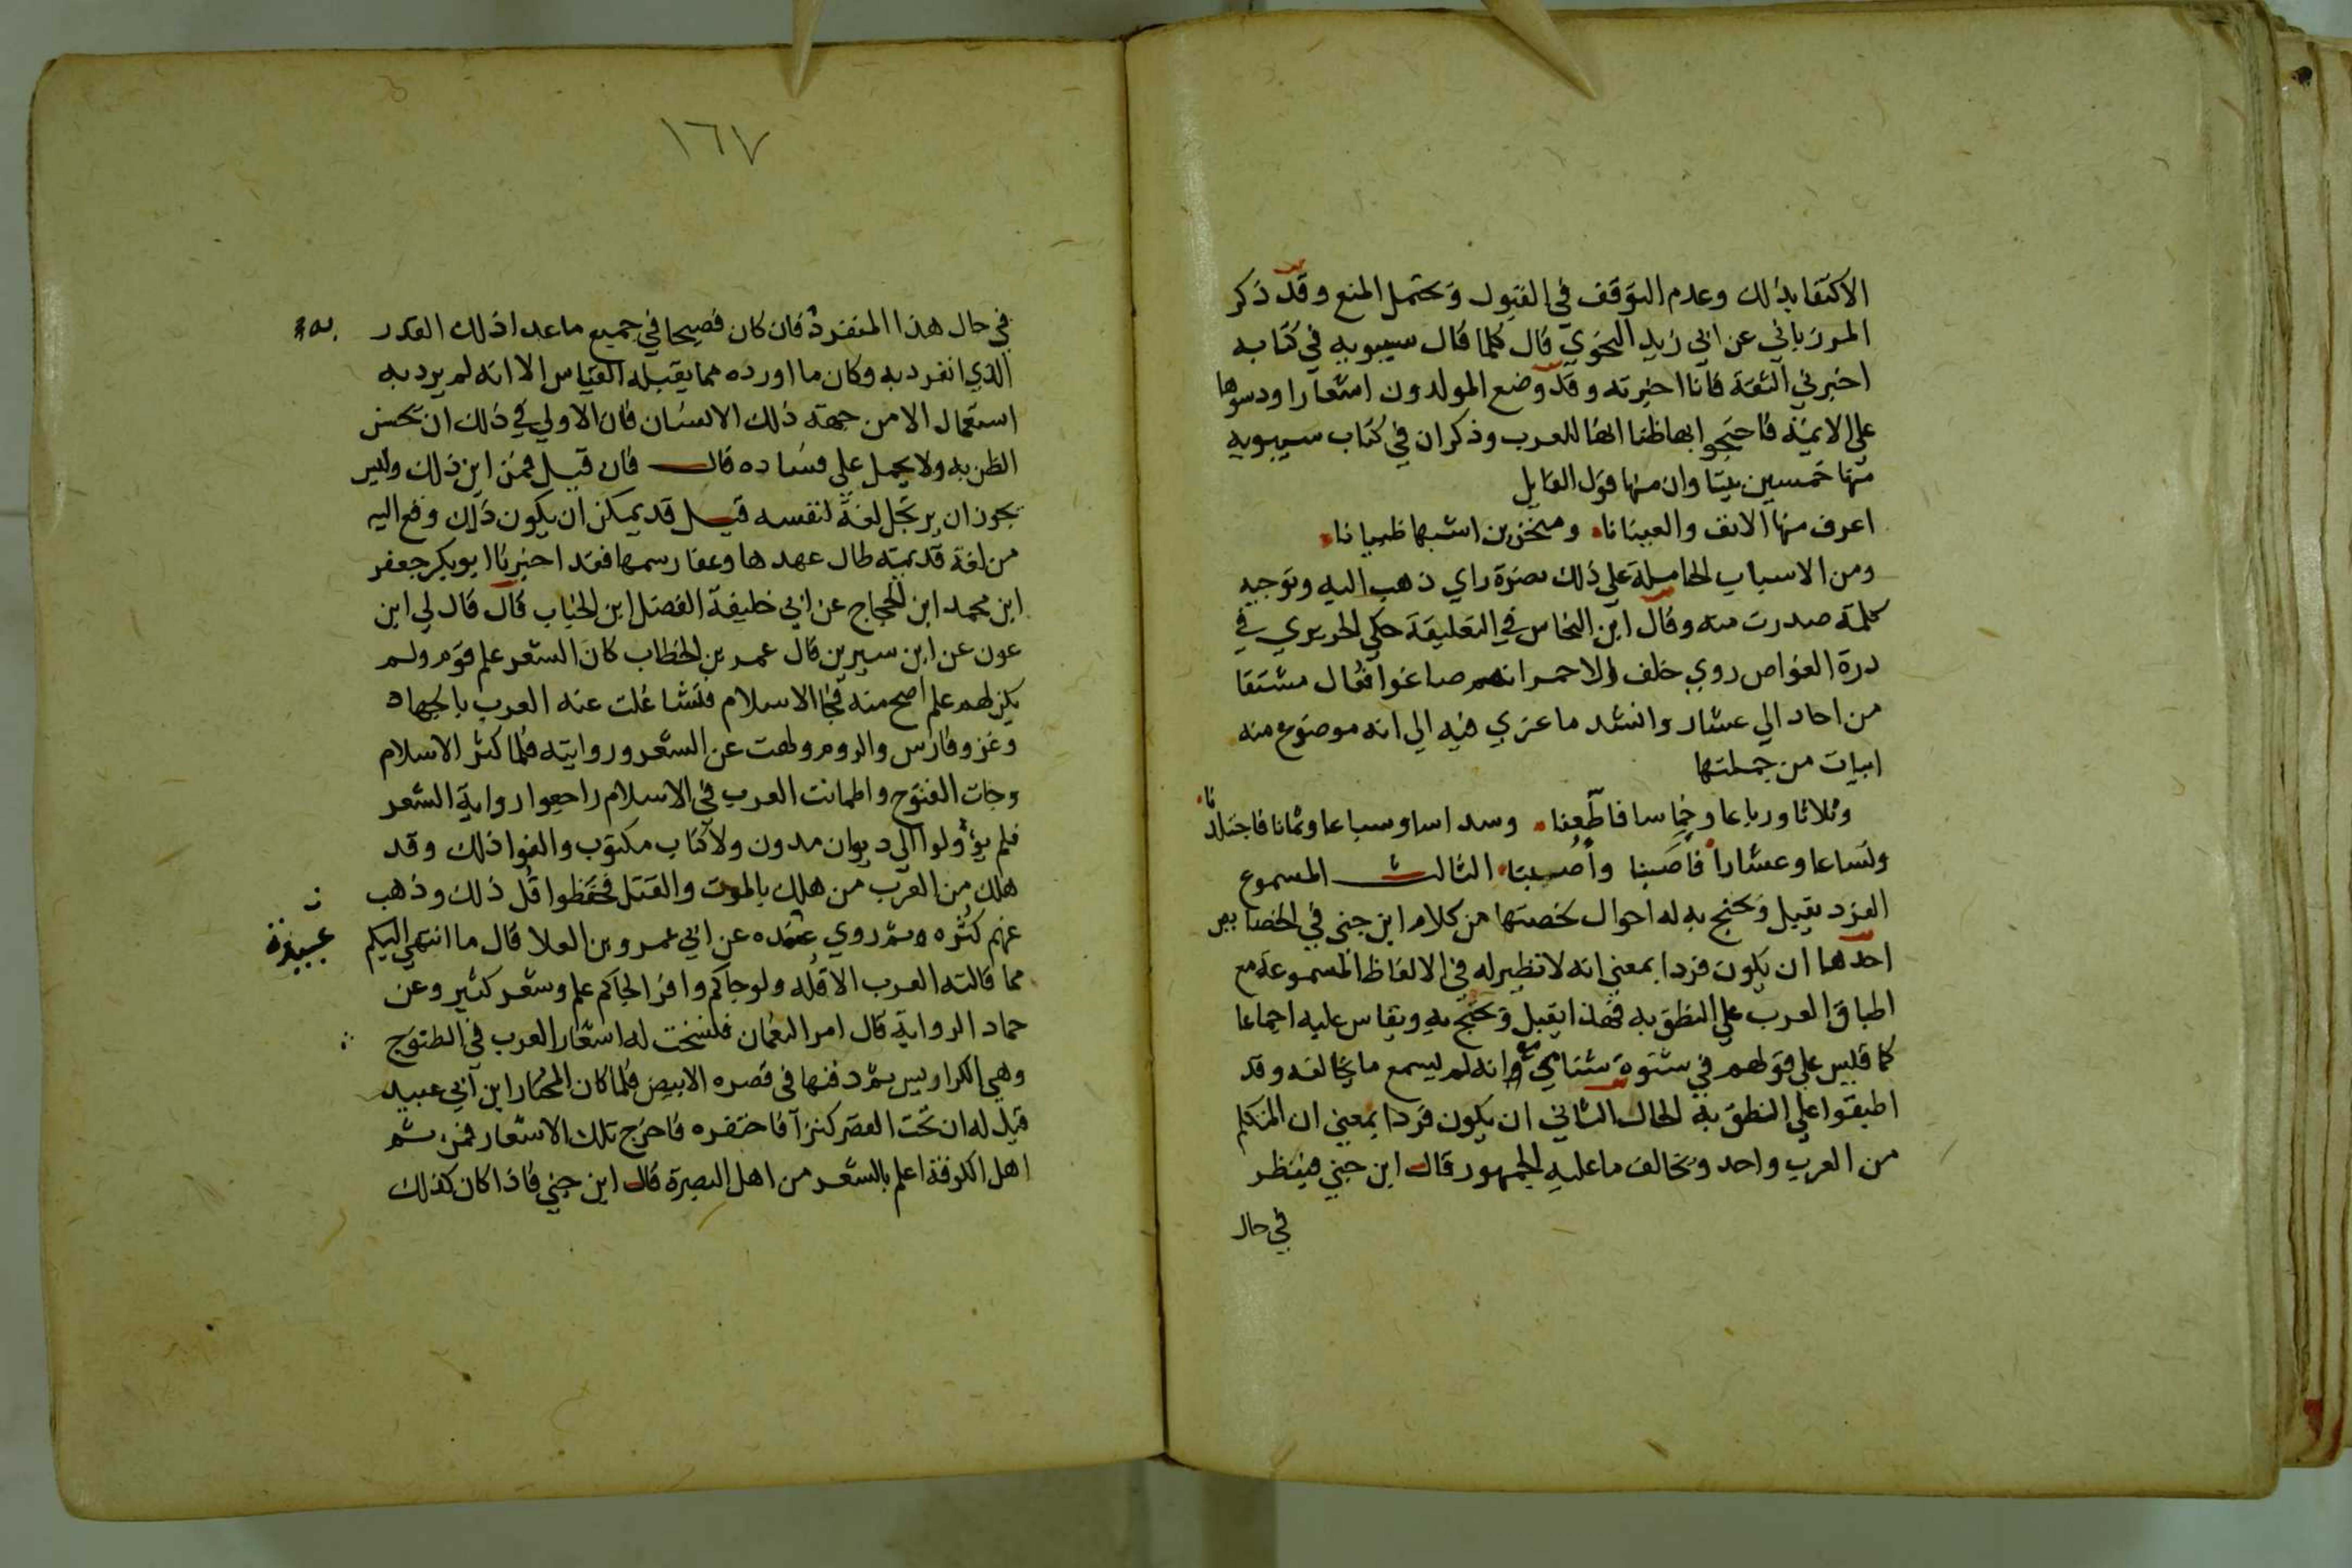 الاكتفا بذلك وعدم التوقف في القبول ويحتمل المنع وقد ذكر
المرزباني عن ابي زيد النحوي قال كلما قال سيبويه في كتابه
اخبرني الثقة فانا اخبرته وقد وضع المولدون اشعارا ودسوها
على الايمة فاحتجوا بها ظنا انها للعرب وذكر ان في كتاب سيبويه
منها خمسين بيتا وان منها قول القايل
اعرف منها الانف والعينانا ومنخرين اشبها ظبيانا
ومن الاسباب الحاملة على ذلك نصرة راي ذهب اليه وتوجيه
كلمة صدرت منه وقال ابن النحاس في التعليقة حكى الحريري في
درة الغواص روي خلف الاحمر انهم صاغوا فعال مشتقا
من احاد الي عشار وانشد ما عزي فيه الي انه موضوع منه
ابيات من جملتها
وثلاثا ورباعا وخماسا فاطعنا وسداسا وسباعا وثمانا فاجتلدنا
وتساعا وعشارا فاصبنا واصبنا الثالث المسموع
الفرد يقبل ويحتج به له احوال لخصتها من كلام ابن جني في الخصايص
احدها ان يكون فردا بمعني انه لا نظير له في الالفاظ المسموعة مع
اطباق العرب علي النطق به فهذا يقبل ويحتج به ويقاس عليه اجماعا
كما قيس علي قولهم في شنوة شناي مع انه لم يسمع ما يخالفه وقد
اطبقوا علي النطق به الحال الثاني ان يكون فردا بمعني ان المتكلم
من العرب واحد ويخالف ما عليه الجمهور قال ابن جني فينظر
في حال
١٦٧
في حال هذا المنفرد فان كان فصيحا في جميع ما عدا ذلك القدر
الذي انفرد به وكان ما اورده مما يقبله القياس الا انه لم يرد به
استعمال الا من جهة ذلك الانسان فان الاولي في ذلك ان تحسن
الظن به ولا يحمل علي فساده قال فان قيل فمن اين ذلك وليس
يجوز ان يرتجل لغة لنفسه قيل قد يمكن ان يكون ذلك وقع اليه
من لغة قديمة طال عهدها وعفا رسمها فقد اخبرنا ابو بكر جعفر
ابن محمد ابن الحجاج عن ابي خليفة الفضل ابن الحباب قال قال لي ابن
عون عن ابن سيرين قال عمر بن الخطاب كان الشعر علم قوم ولم
يكن لهم علم اصح منه فجا الاسلام فتشاغلت عنه العرب بالجهاد
وغزو فارس والروم ولهت عن الشعر وروايته فلما كثر الاسلام
وجات الفتوح واطمانت العرب في الاسلام راجعوا رواية الشعر
فلم يؤولوا الي ديوان مدون ولا كتاب مكتوب والفوا ذلك وقد
هلك من العرب من هلك بالموت والقتل فحفظوا قل ذلك وذهب
عنهم كثره ثم روي عنده عن ابي عمرو بن العلا قال ما انتهي اليكم
مما قالته العرب الا قله ولو جاكم وافرا لجاكم علم وشعر كثير وعن
حماد الرواية قال امر النعمان فنسخت له اشعار العرب في الطنوج
وهي الكراريس ثم دفنها في قصره الابيض فلما كان المختار ابن ابي عبيد
قيل له ان تحت القصر كنزا فاحتفره فاخرج تلك الاشعار فمن ثم
اهل الكوفة اعلم بالشعر من اهل البصرة قال ابن جني فاذا كان كذلك